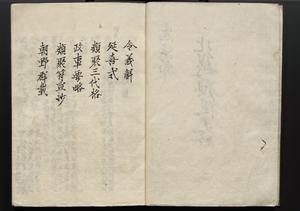 令義解
延喜式
類聚三代格
政事要略
類聚符宣抄
朝野群載